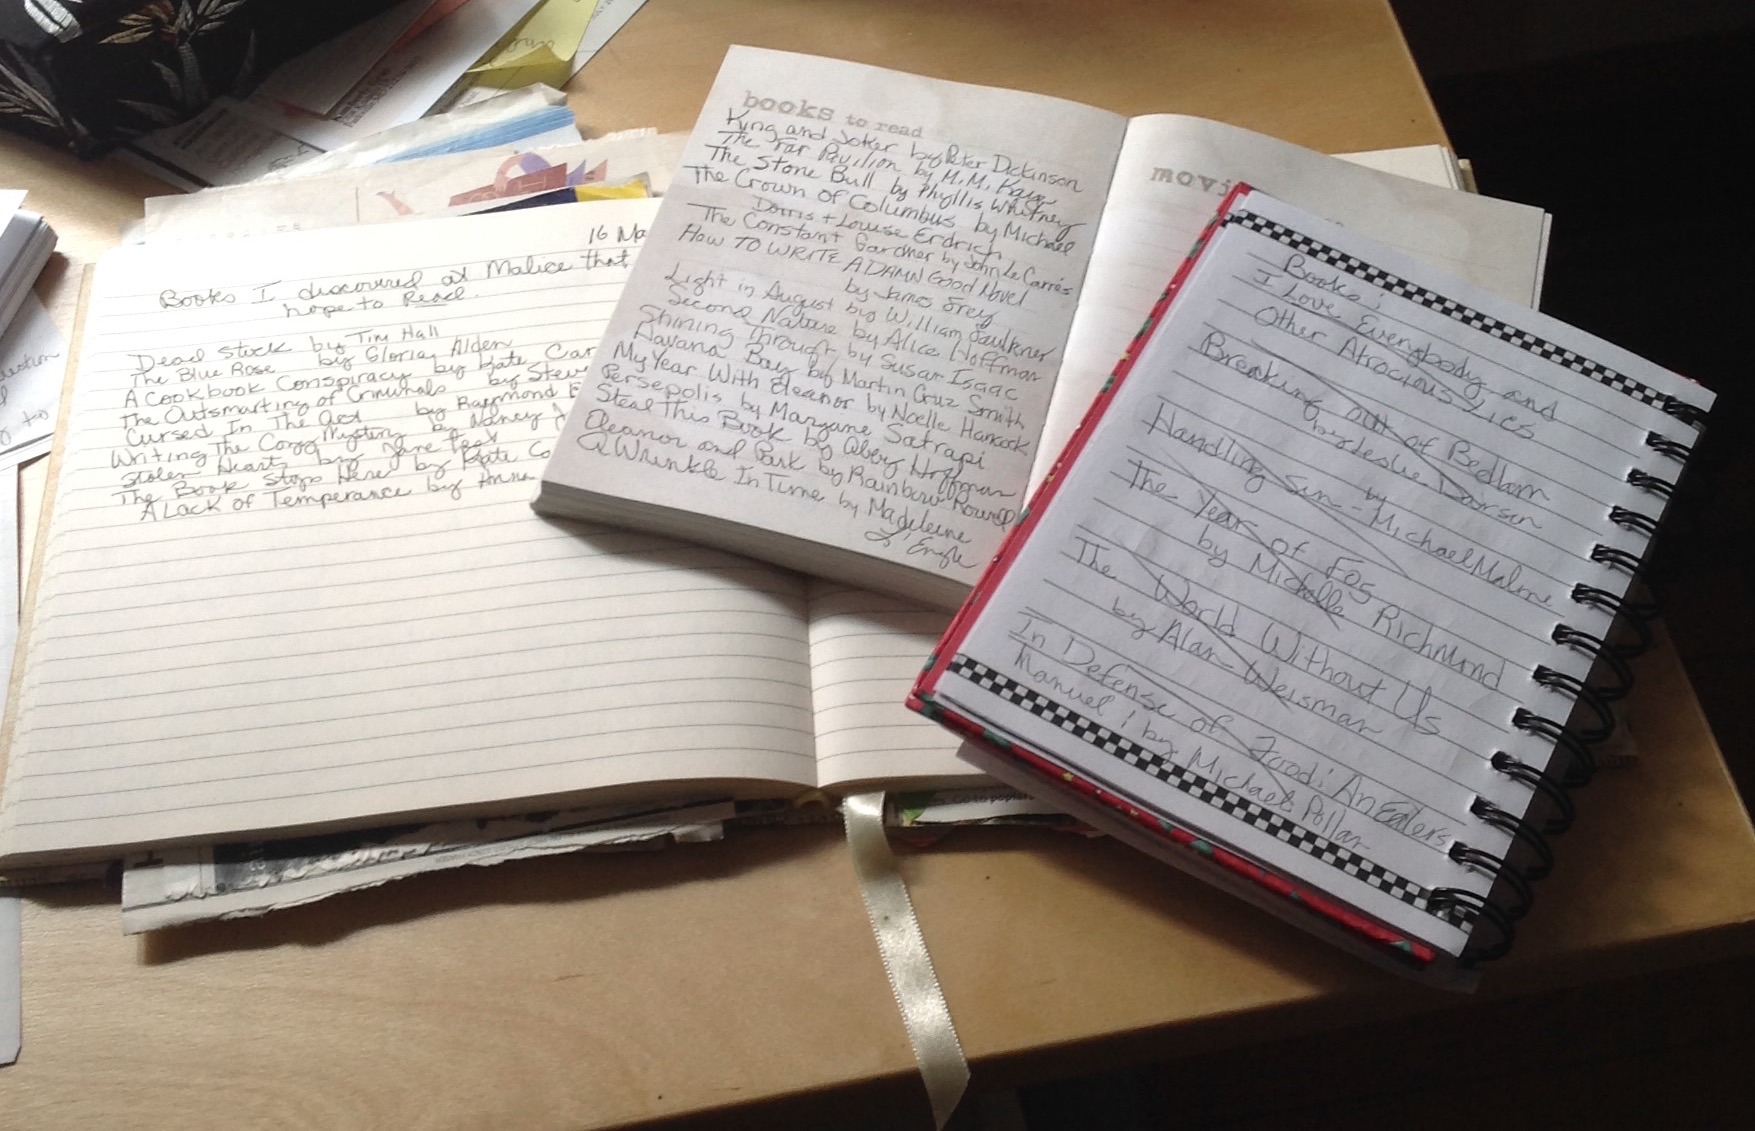 16 Ma
Books I discovered at Malice that
hope to Read.
Dead Stock by Tim Hall
The Blue Rose by Gloriay Alden
A Cookbook Conspiracy by Kate Car
The Outsmarting of Criminals by Steve
Cursed In The Act by Raymond B
Writing The Cozy Mystery by Nancy J
Stolen Hearts by Jane
The Book Stops Here by Kate Ca
A Lack of Temperance by Anna
books to read
King and Joker by Peter Dickinson
The Far Pavilion by M.M. Kaye
The Stone Bull by Phyllis Whitney
The Crown of Columbus by Michael
Dorris + Louise Erdrich
The Constant Gardner by John Le Carrés
HOW TO WRITE A DAMN Good Novel
by James Frey
Light in August by William Faulkner
Second Nature by Alice Hoffman
Shining Through by Susan Isaac
Havana Bay by Martin Cruz Smith
My Year With Eleanor by Noelle Hancock
Persepolis by Maryane Satrapi
Steal This Book by Abery Hoffman
Eleanor and Park by Rainbow Rowell
A Wrinkle In Time by Madeleine
L'Engle
movi
Books:
I Love Everybody and
Other Atrocious Lies
Breaking out of Bedlam
by Leslie Larson
Handling Sin - by Michael Malone
The Year of Fog
by Michelle Richmond
The World Without Us
by Alan Weisman
In Defense of Food: An Eaters
Manuel : by Michael Pollan